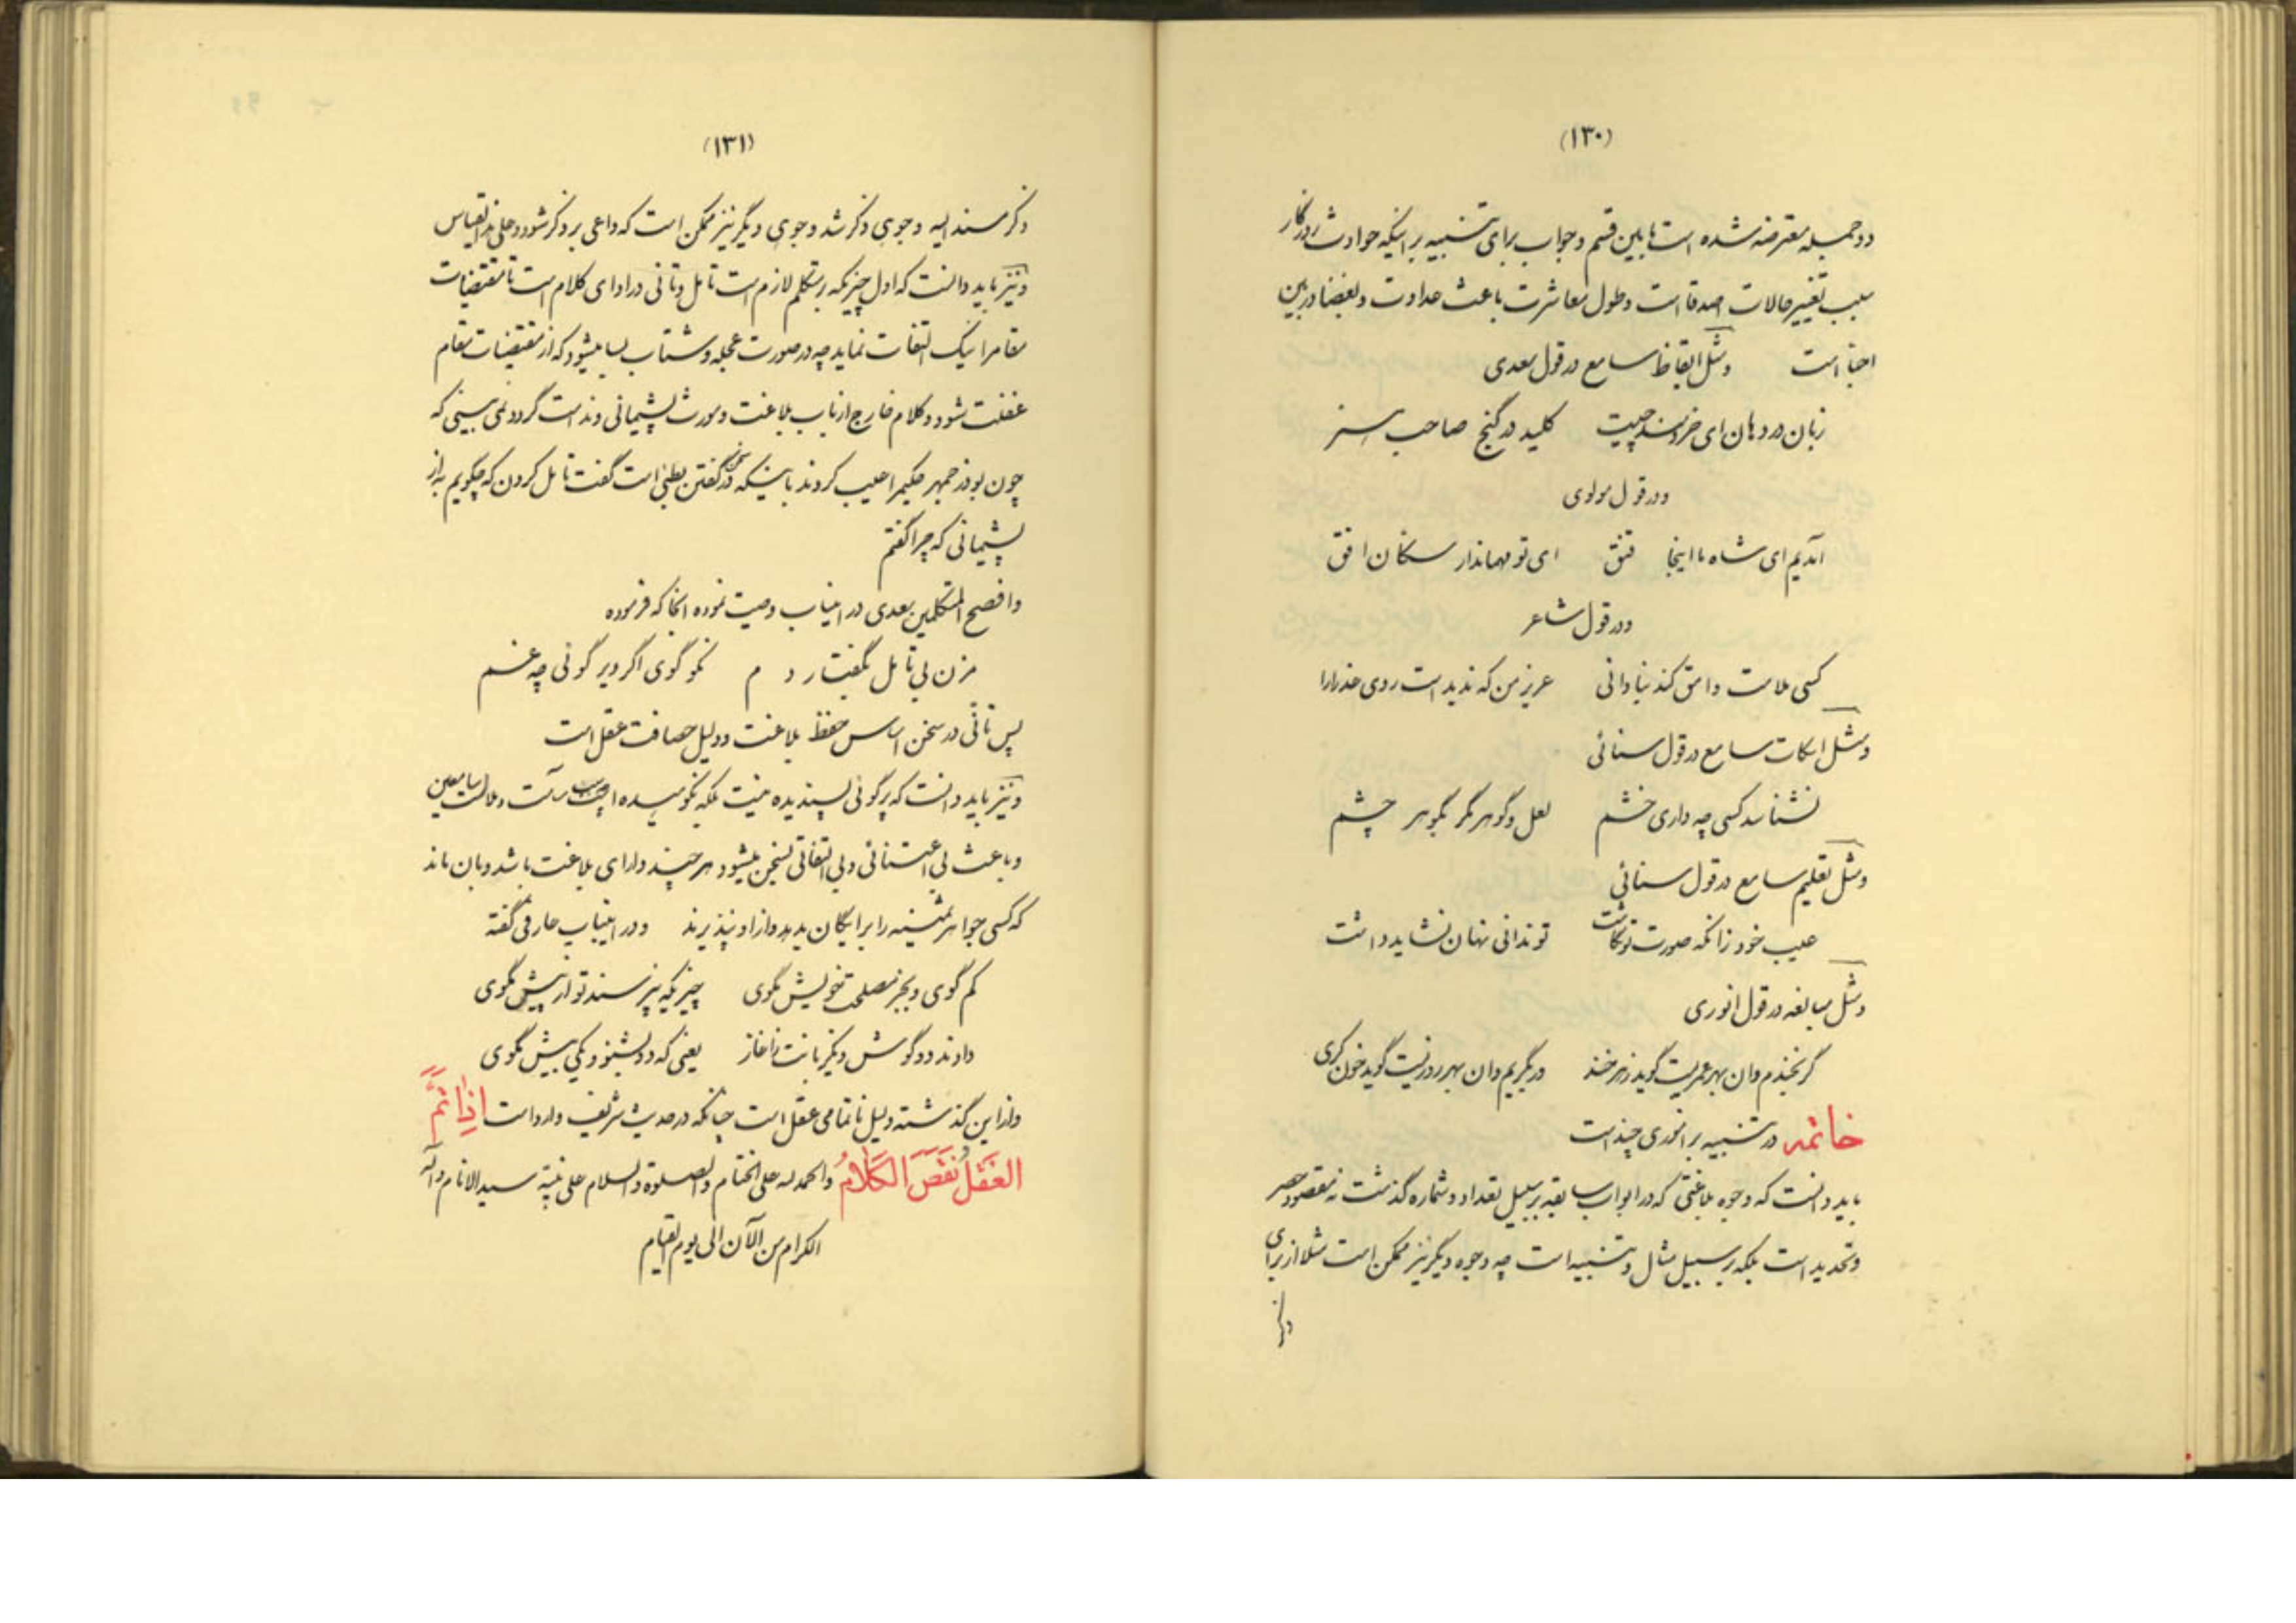 (۱۳۰)
دو جمله معترضه شده است مابین قسم و جواب برای تنبیه بر اینکه حوادث روزگار
سبب تغییر حالات اصدقا است و طول معاشرت باعث عداوت و بغضا در بین
احبا است و مثل ایقاظ سامع در قول سعدی
زبان در دهان ای خردمند چیست کلید در گنج صاحب هنر
و در قول مولوی
آمدیم ای شاه ما اینجا قنق ای تو مهماندار سکان افق
و در قول شاعر
کسی ملامت وامق کند بنادانی عزیز من که ندیده است روی عذرا را
و مثل اسکات سامع در قول سنائی
نشناسد کسی چه داری خشم لعل و گوهر مگر بگوهر چشم
و مثل تعلیم سامع در قول سنائی
عیب خود زانکه صورت تو نگاشت تو ندانی نهان نشاید داشت
و مثل مبالغه در قول انوری
گر بخندم وان بهر عمریست گوید زهر خند ور بگریم وان بهر روزیست گوید خون گری
خاتمه در تنبیه بر اموری چند است
باید دانست که وجوه بلاغتی که در ابواب سابقه بر سبیل تعداد و شماره گذشت نه مقصود حصر
و تحدید است بلکه بر سبیل مثال و تنبیه است چه وجوه دیگر نیز ممکن است مثلا از برای
ذکر
(۱۳۱)
ذکر مسندالیه وجوهی ذکر شد وجوهی دیگر نیز ممکن است که داعی بر ذکر شود و علی هذا القیاس
و نیز باید دانست که اول چیزیکه بر متکلم لازم است تامل و تانی در ادای کلام است تا مقتضیات
مقامرا نیک التفات نماید چه در صورت عجله و شتاب بسا میشود که از مقتضیات مقام
غفلت شود و کلام خارج از باب بلاغت و مورث پشیمانی و ندامت گردد نمی بینی که
چون بوذرجمهر حکیمرا عیب کردند باینکه در سخن گفتن بطئی است گفت تامل کردن که چگویم به از
پشیمانی که چرا گفتم
و افصح المتکلمین سعدی در اینباب وصیت نموده انجا که فرموده
مزن بی تامل بگفتار دم نکو گوی اگر دیر گوئی چه غم
پس تانّی در سخن اساس حفظ بلاغت و دلیل حصافت عقل است
و نیز باید دانست که پرگوئی پسندیده نیست بلکه نکوهیده است و سبب سآمت و ملالت سامعین
و باعث بی اعتنائی و بی التفاتی بسخن میشود هر چند دارای بلاغت باشد و بان ماند
که کسی جواهر ثمینه را برایگان بدهد و از او نپذیرند و در اینباب عارفی گفته
کم گوی و بجز مصلحت خویش مگوی چیزیکه نپرسند تو از پیش مگوی
دادند دو گوش و یک زبانت ز آغاز یعنی که دو بشنو و یکی بیش مگوی
و از این گذشته دلیل ناتمامی عقل است چنانکه در حدیث شریف وارد است اِذا تَمَّ
العَقلُ نَقَصَ الکَلامُ و الحمد لله علی الختام و الصلوة و السلام علی نبیّه سید الانام و آله
الکرام من الآن الی یوم القیام